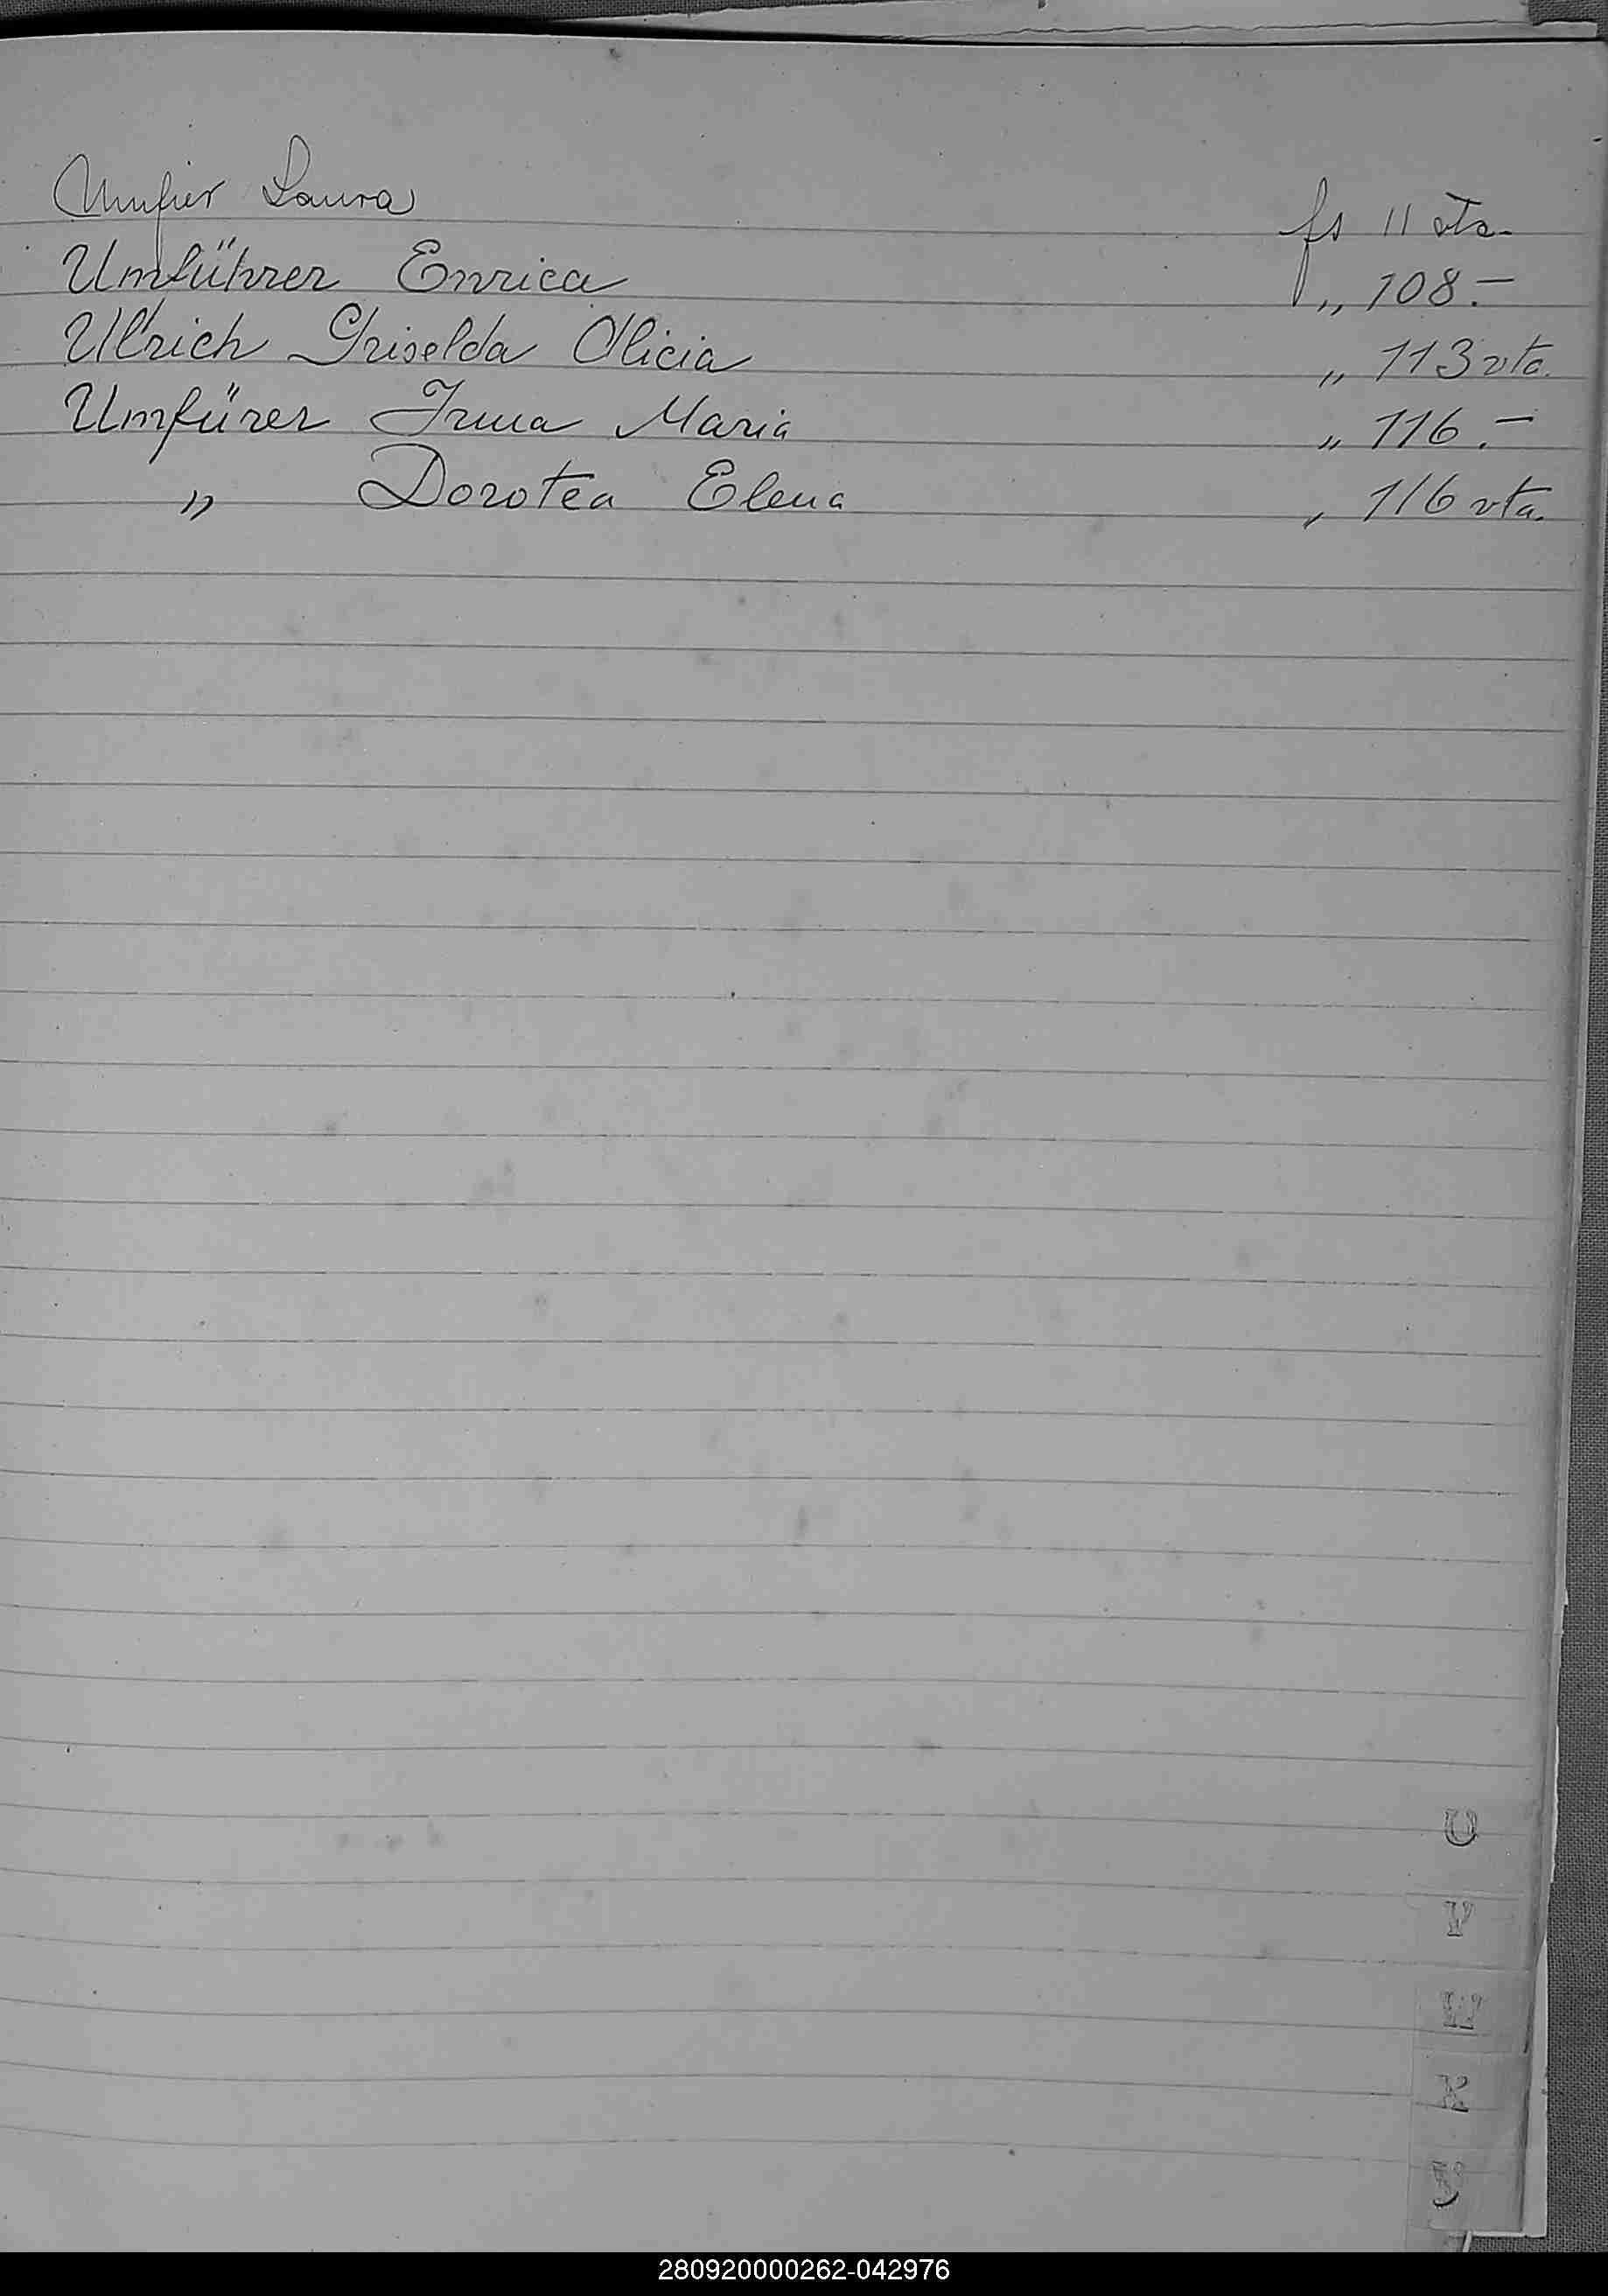 Umfier Laura fs 11 vta.
Umführer Enrica „ 108.—
Ullrich Griselda Alicia „ 113 vta.
Umfürer Irma Maria „ 116.—
„ Dorotea Elena „ 116 vta.
U
V
W
X
Y
280920000262-042976